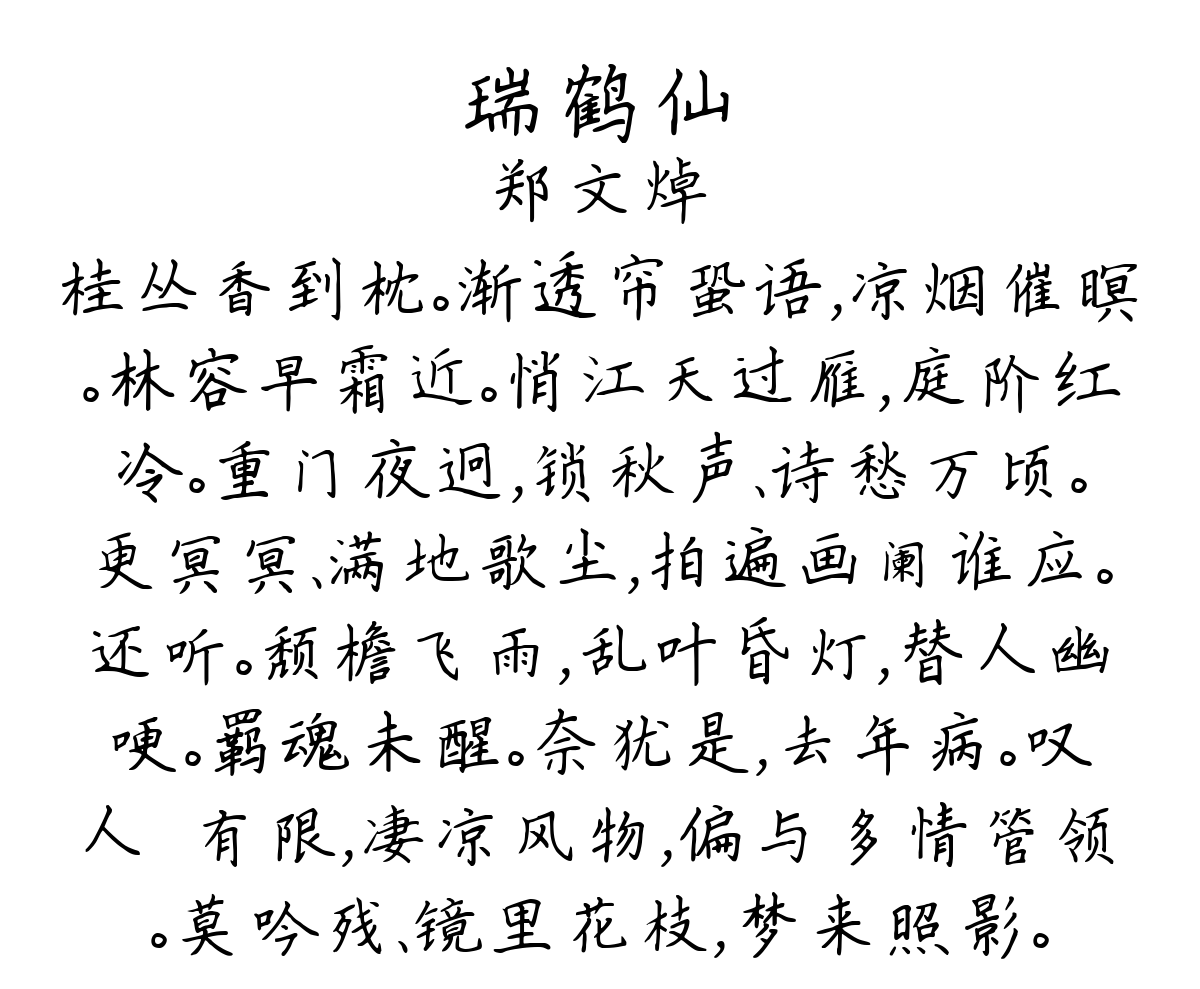 瑞鹤仙
郑文焯
桂丛香到枕。渐透帘蛩语,凉烟催暝
。林容早霜近。悄江天过雁,庭阶红
冷。重门夜迥,锁秋声、诗愁万顷。
更冥冥、满地歌尘,拍遍画阑谁应。
还听。颓檐飞雨,乱叶昏灯,替人幽
哽。羁魂未醒。奈犹是,去年病。叹
人 有限,凄凉风物,偏与多情管领
。莫吟残、镜里花枝,梦来照影。